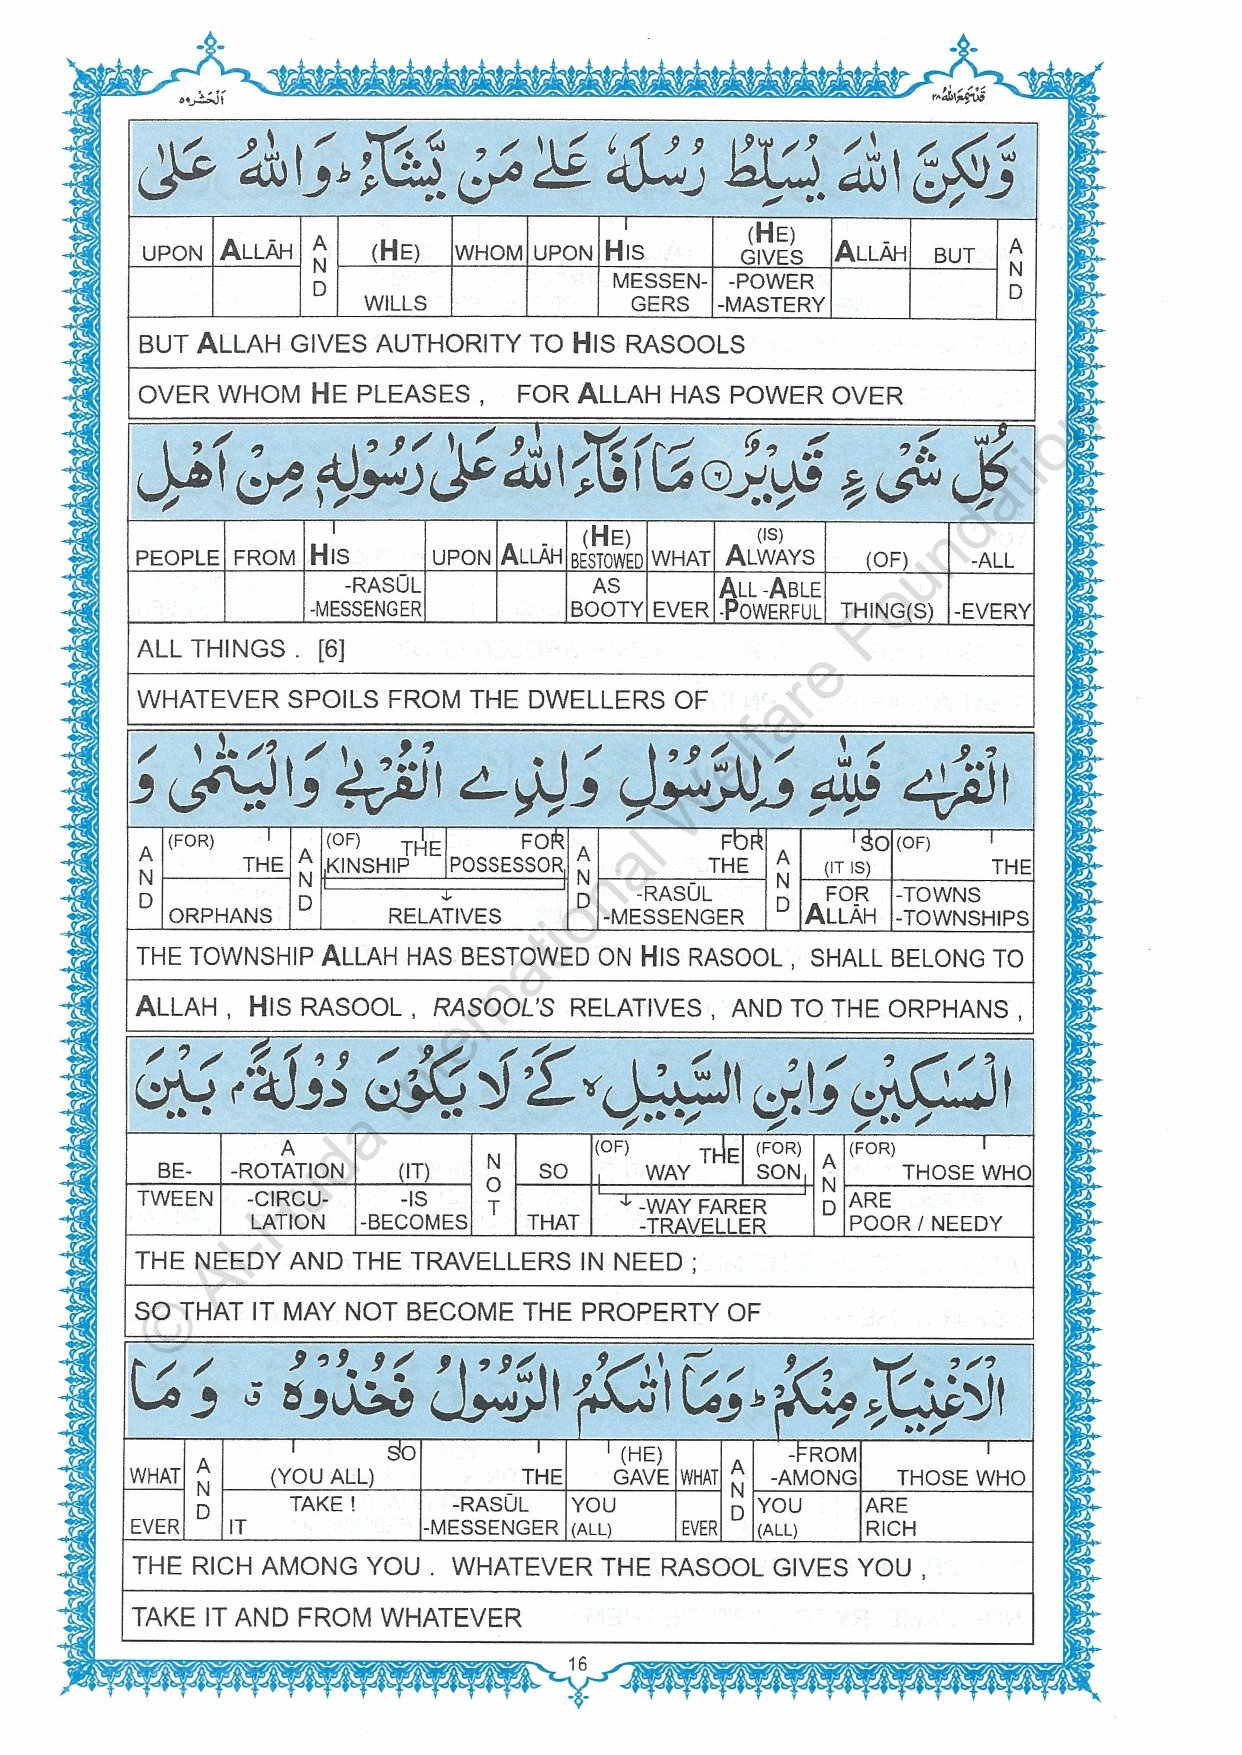 اَلْحَشْر ٥٩
قَدْ سَمِعَ اللّٰهُ ٢٨
وَّلٰكِنَّ اللّٰهَ يُسَلِّطُ رُسُلَهٗ عَلٰى مَنْ يَّشَآءُ ؕ وَاللّٰهُ عَلٰى
UPON ALLĀH AND (HE) WHOM UPON HIS (HE) GIVES ALLĀH BUT AND
WILLS MESSEN-GERS -POWER -MASTERY
BUT ALLAH GIVES AUTHORITY TO HIS RASOOLS
OVER WHOM HE PLEASES , FOR ALLAH HAS POWER OVER
كُلِّ شَىْءٍ قَدِيْرٌ ۝٦ مَاۤ اَفَآءَ اللّٰهُ عَلٰى رَسُوْلِهٖ مِنْ اَهْلِ
PEOPLE FROM HIS UPON ALLĀH (HE) BESTOWED WHAT (IS) ALWAYS (OF) -ALL
-RASŪL -MESSENGER AS BOOTY EVER ALL -ABLE -POWERFUL THING(S) -EVERY
ALL THINGS . [6]
WHATEVER SPOILS FROM THE DWELLERS OF
الْقُرٰى فَلِلّٰهِ وَلِلرَّسُوْلِ وَلِذِى الْقُرْبٰى وَالْيَتٰمٰى وَ
AND (FOR) THE AND (OF) THE KINSHIP FOR POSSESSOR AND FOR THE AND SO (IT IS) (OF) THE
ORPHANS RELATIVES -RASŪL -MESSENGER FOR ALLĀH -TOWNS -TOWNSHIPS
THE TOWNSHIP ALLAH HAS BESTOWED ON HIS RASOOL , SHALL BELONG TO
ALLAH , HIS RASOOL , RASOOL'S RELATIVES , AND TO THE ORPHANS ,
الْمَسٰكِيْنِ وَابْنِ السَّبِيْلِ ۙ كَىْ لَا يَكُوْنَ دُوْلَةًۢ بَيْنَ
BE- A -ROTATION (IT) NOT SO (OF) THE WAY (FOR) SON AND (FOR) THOSE WHO
TWEEN -CIRCU-LATION -IS -BECOMES THAT -WAY FARER -TRAVELLER ARE POOR / NEEDY
THE NEEDY AND THE TRAVELLERS IN NEED ;
SO THAT IT MAY NOT BECOME THE PROPERTY OF
الْاَغْنِيَآءِ مِنْكُمْ ؕ وَمَاۤ اٰتٰىكُمُ الرَّسُوْلُ فَخُذُوْهُ ۗ وَمَا
WHAT AND SO (YOU ALL) THE (HE) GAVE WHAT AND -FROM -AMONG THOSE WHO
EVER TAKE ! IT -RASŪL -MESSENGER YOU (ALL) EVER YOU (ALL) ARE RICH
THE RICH AMONG YOU . WHATEVER THE RASOOL GIVES YOU ,
TAKE IT AND FROM WHATEVER
16
© Al-Huda International Welfare Foundation